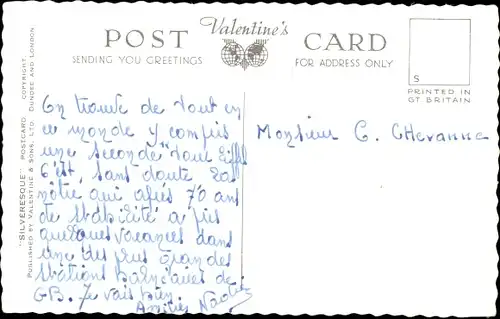 POST Valentine's CARD
SENDING YOU GREETINGS
FOR ADDRESS ONLY
S
PRINTED IN
GT. BRITAIN
"SILVERESQUE" POSTCARD. COPYRIGHT.
PUBLISHED BY VALENTINE & SONS, LTD. DUNDEE AND LONDON.
On trouve de tout en
ce monde y compris
une seconde "Tour Eiffel
C'est, sans doute la
nôtre qui après 70 ans
de stabilité a pris
quelques vacances dans
une des plus grandes
stations balnéaires de
GB. Je vais bien
Amitiés
Monsieur C. Chevanne